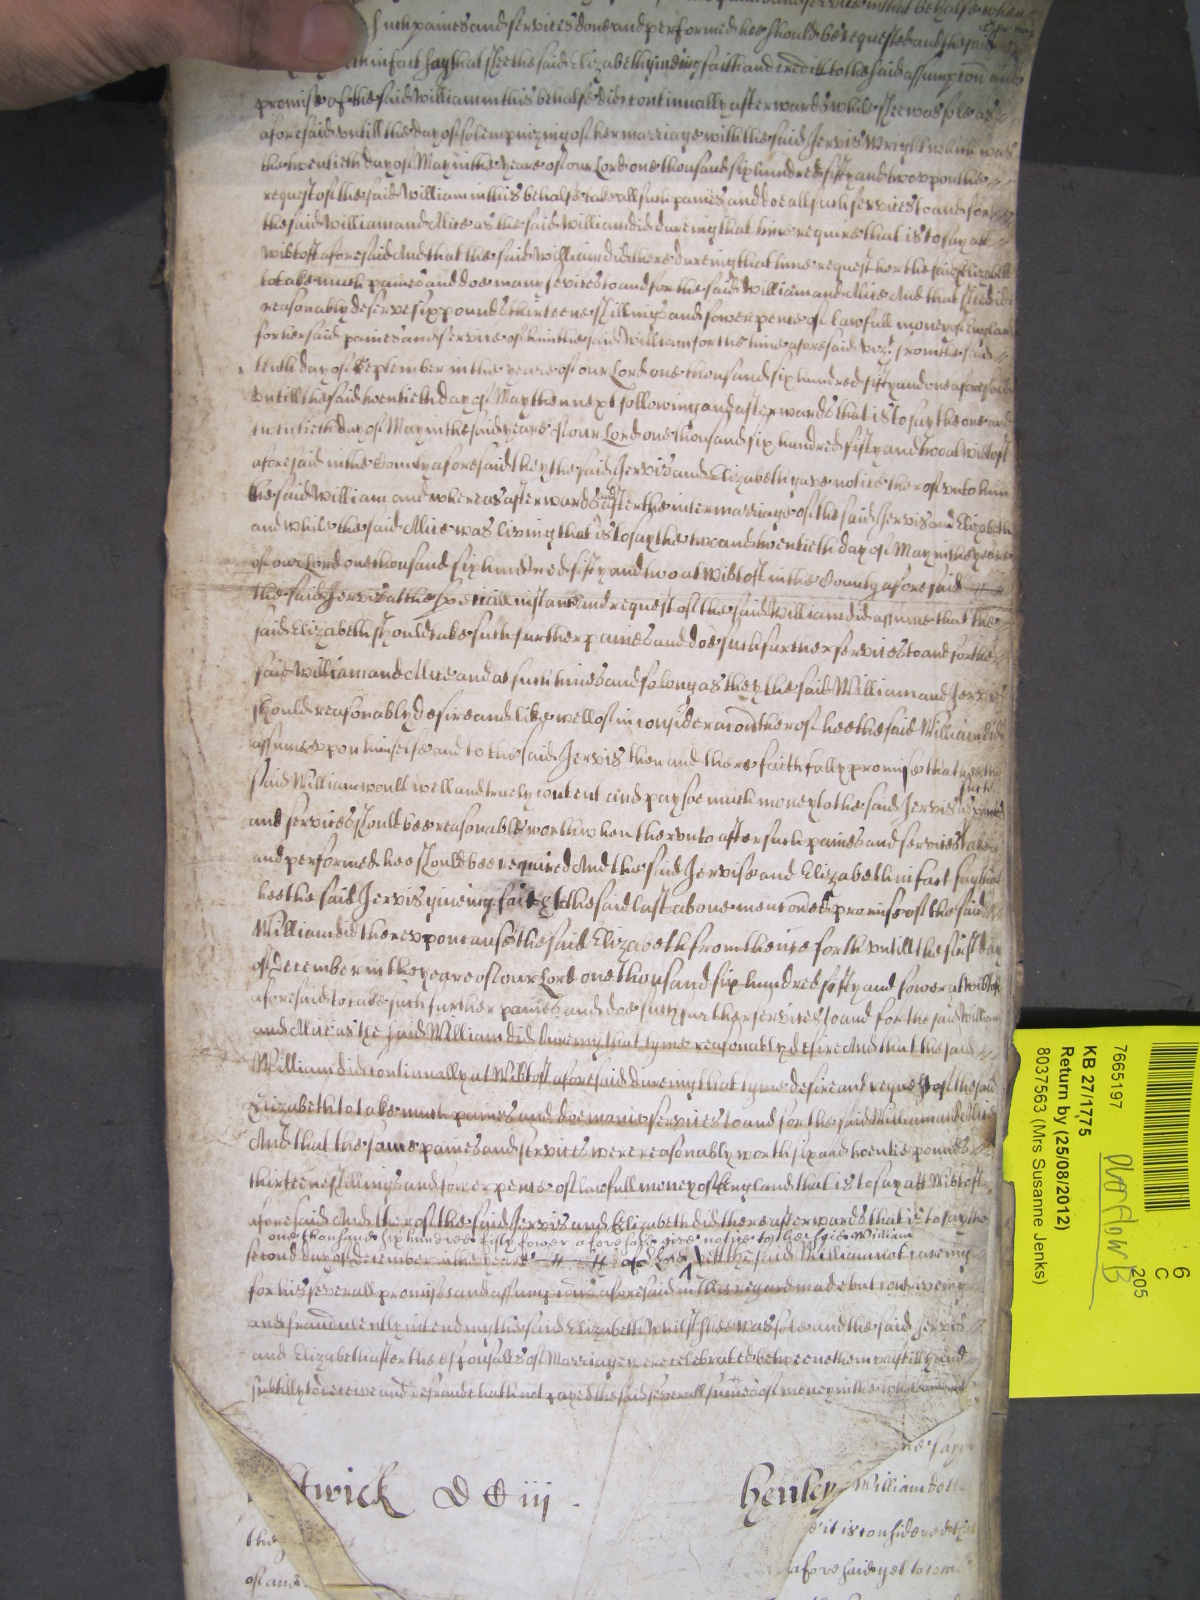 such paines and services done and performed hee should be requested and the said
in fact say that shee the said Elizabeth giveing faith and creditt to the said assumpcon and
promise of the said William in this behalfe did continually afterwards while shee was sole as
aforesaid untill the day of solempnizing of her marriage with the said Jervis Wright which was
the twentieth day of May in the yeare of our Lord one thousand six hundred fifty and two upon the
request of the said William in this behalfe take all such paines and doe all such services to and for
the said William and Alice as the said William did dureing that time require that is to say att
Wibtoft aforesaid And that the said William did there dureing that time request her the said Elizabeth
to take much paines and doe many services to and for the said William and Alice And that shee did
reasonably deserve six pounds thirteene shillings and fower pence of lawfull money of England
for her said paines and service of him the said William for the time aforesaid vizt from the said
tenth day of September in the yeare of our Lord one thousand six hundred fifty and one aforesaid
untill the said twentieth day of May then next following and afterwards that is to say the one and
twentieth day of May in the said yeare of our Lord one thousand six hundred fifty and two at Wibtoft
aforesaid in the County aforesaid they the said Jervis and Elizabeth gave notice thereof unto him
the said William and whereas afterwards and after the intermarriage of the said Jervis and Elizabeth
and while the said Alice was living that is to say the two and twentieth day of May in the yeare
of our Lord one thousand six hundred fifty and two at Wibtoft in the County aforesaid
the said Jervis at the speciall instance and request of the said William did assume that the
said Elizabeth should take such further paines and doe such further services to and for the
said William and Alice and at such times and so long as they the said William and Jervis
should reasonably desire and like well of in consideracon thereof hee the said William did
assume upon himselfe and to the said Jervis then and there faithfully promise that hee the
said William would well and truely content and pay soe much money to the said Jervis as such paines
and services should bee reasonable worth when thereunto after such paines and services taken
and performed hee should bee required And the said Jervise and Elizabeth in fact say that
hee the said Jervis giveing faith to the said last above menconed promise of the said
William did thereupon cause the said Elizabeth from thence forth untill the first day
of December in the yeare of our Lord one thousand six hundred fifty and fower at Wibtoft
aforesaid to take such further paines and doe such further services to and for the said William
and Alice as the said William did dureing that tyme reasonably desire And that the said
William did continually at Wibtoft aforesaid dureing that tyme desire and request of the said
Elizabeth to take much paines and doe manie services to and for the said William and Alice
And that the same paines and services were reasonably worth six and twentie pounds
thirteene shillings and fower pence of lawfull money of England that is to say att Wibtoft
aforesaid And thereof the said Jervis and Elizabeth did there afterwards that is to say the
one thousand six hundred fifty fower aforesaid give notice to the said William
second day of December in the yeare of o Lord yett the said William not careing
for his severall promises and assumpcons aforesaid in this regard made but conniveing
and fraudulently intending the said Elizabeth whilst shee was sole and the said Jervis
and Elizabeth after the espousalls of Marriage were celebrated betweene them craftilly and
subtilly to deceive and defraude hath not payed the said severall summes of money in the whole
twick D C iij . Henley
William doth
it is considered that
the
aforesaid yet to come
of and
6
C
205
7665197
KB 27/1775
Return by (25/08/2012)
8037563 (Mrs Susanne Jenks)
Overflow B